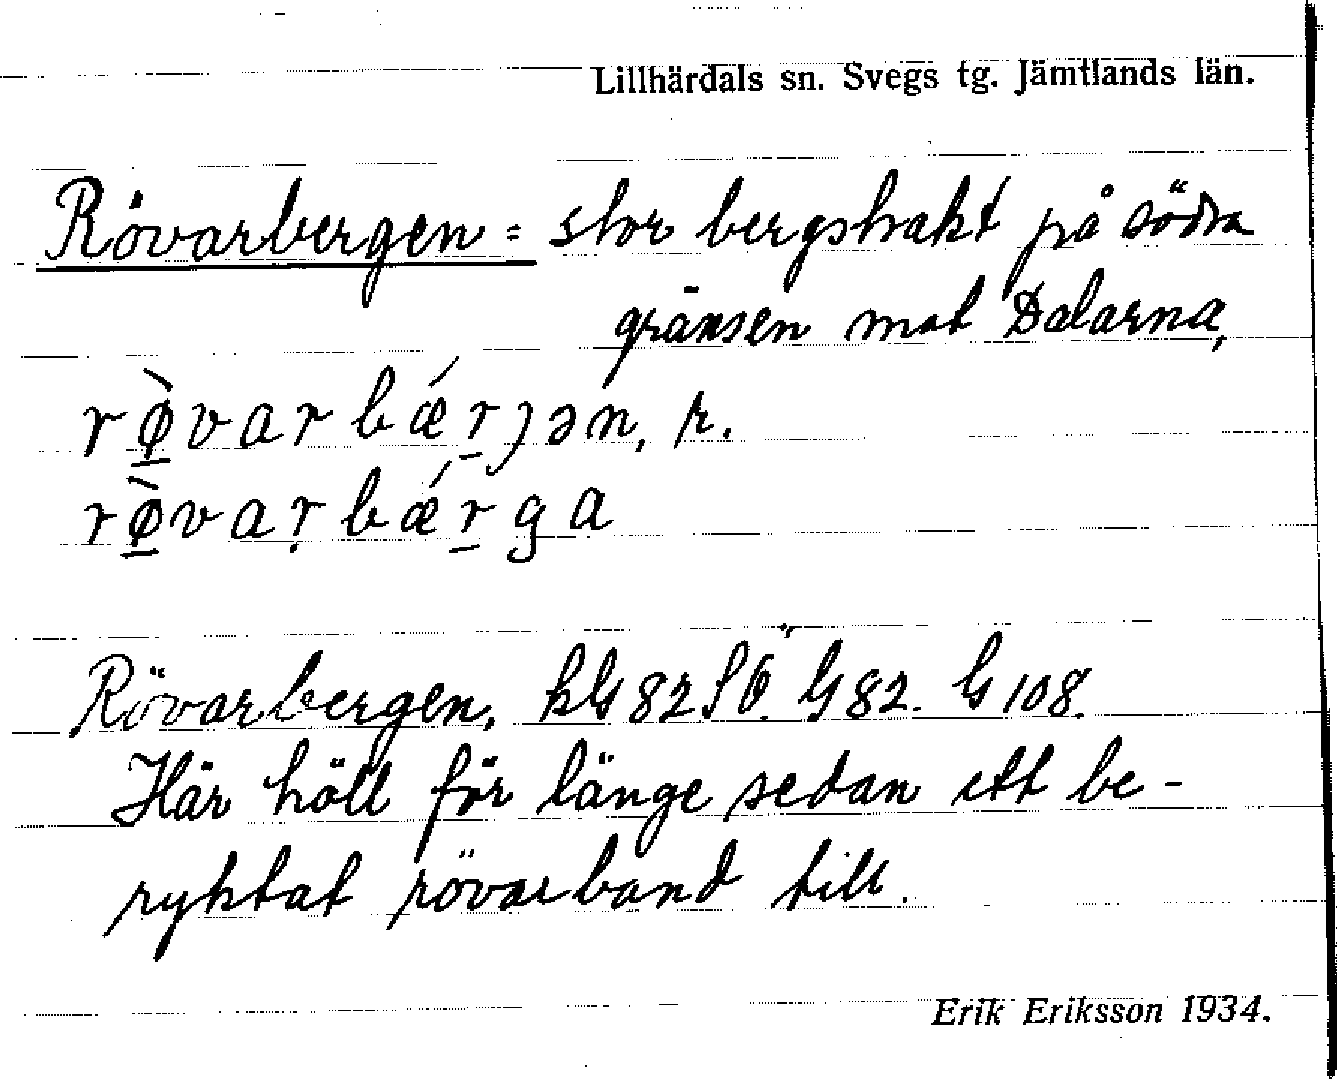 Lillhärdals sn. Svegs tg. Jämtlands län.
Rövarbergen = stor bergstrakt på södra
gränsen mot Dalarna,
rø̱̀varbǽṟȷən, r.
rø̱̀vaṛbǽṟga
Rövarbergen, kG 82 SÖ. G 82. G 108.
Här höll för länge sedan ett be-
ryktat rövarband till.
Erik Eriksson 1934.